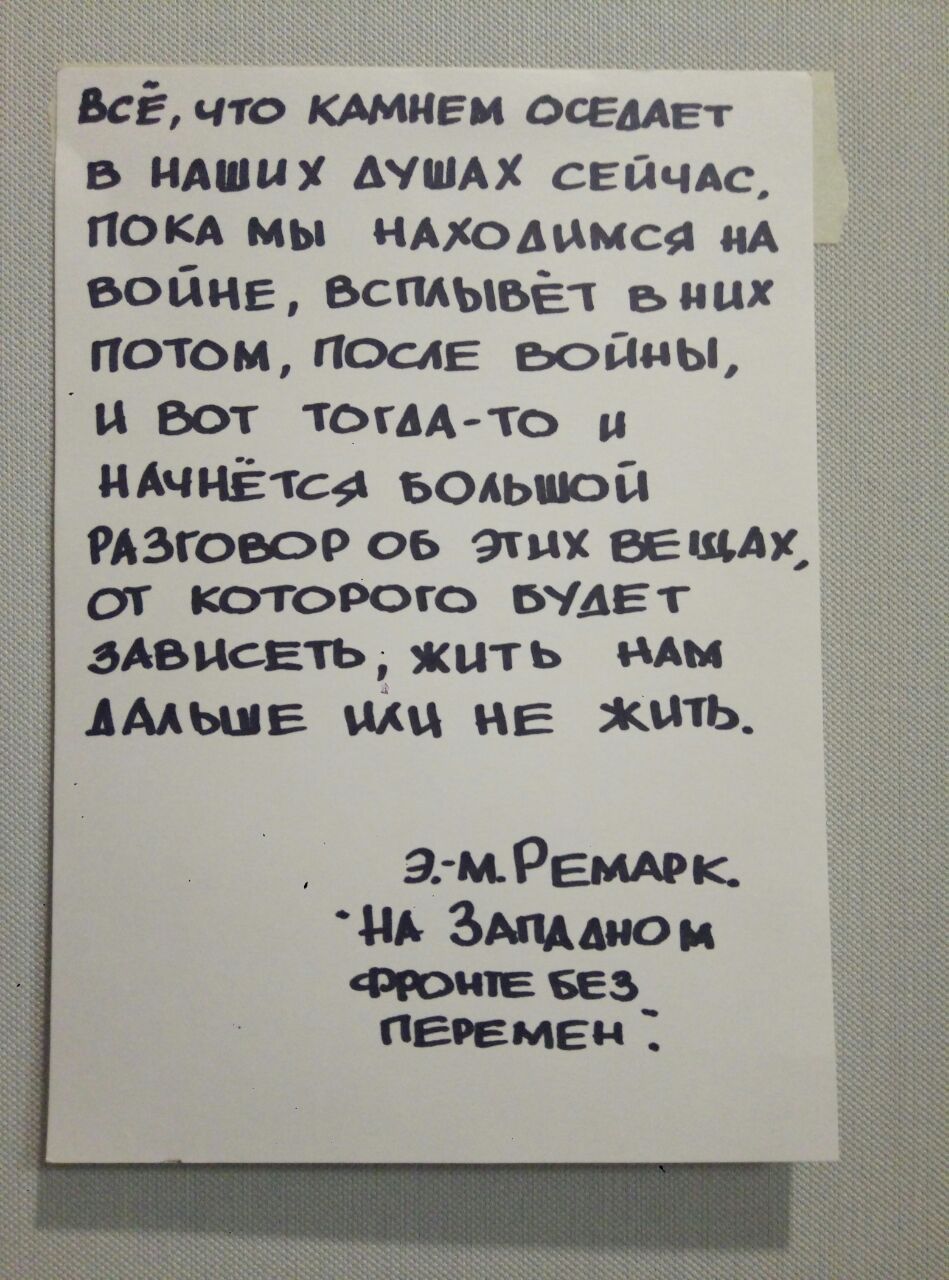 Всё, что камнем оседает
в наших душах сейчас,
пока мы находимся на
войне, всплывёт в них
потом, после войны,
и вот тогда-то и
начнётся большой
разговор об этих вещах,
от которого будет
зависеть, жить нам
дальше или не жить.
Э.-М. Ремарк.
"На Западном
фронте без
перемен".